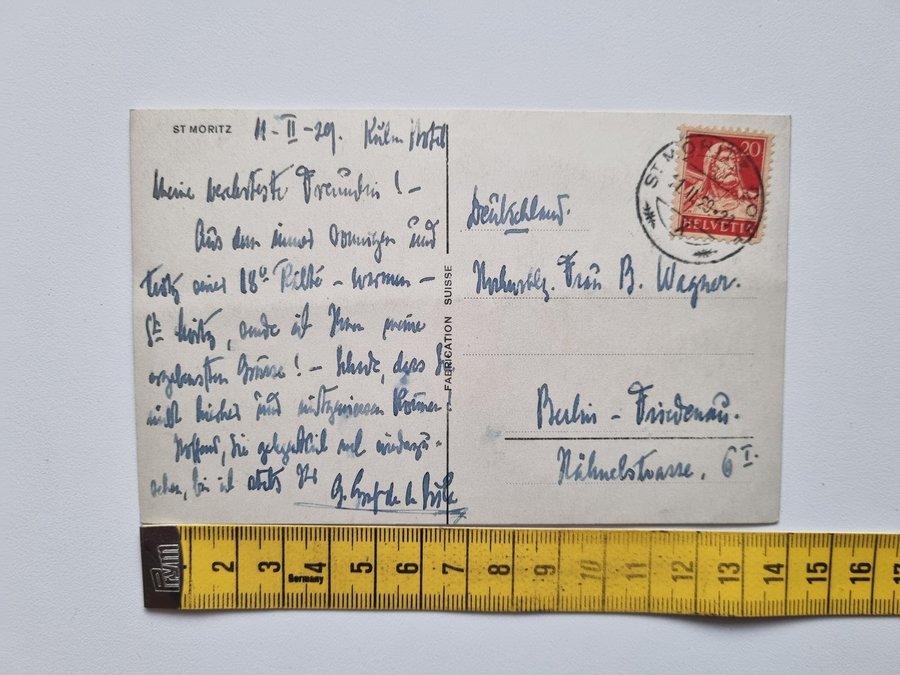 ST MORITZ
11-II-29. Kulm Hotel
Meine verehrteste Freundin! -
Aus dem immer sonnigen und
trotz einer 18° Kälte - warmen -
St. Moritz, sende ich Ihnen meine
ergebensten Grüsse! - Schade, dass Sie
nicht hierher und mitgeniessen können.
Hoffend, Sie gelegentlich mal wiederzu-
sehen, bin ich stets Ihr
G. Graf de la
FABRICATION SUISSE
20
HELVETIA
ST. MORITZ DORF
Deutschland.
Frau B. Wagner.
Berlin - Friedenau.
Hähnelstrasse, 6 I.
Prym
2 3 4 5 6 7 8 9 10 11 12 13 14 15 16 17
Germany